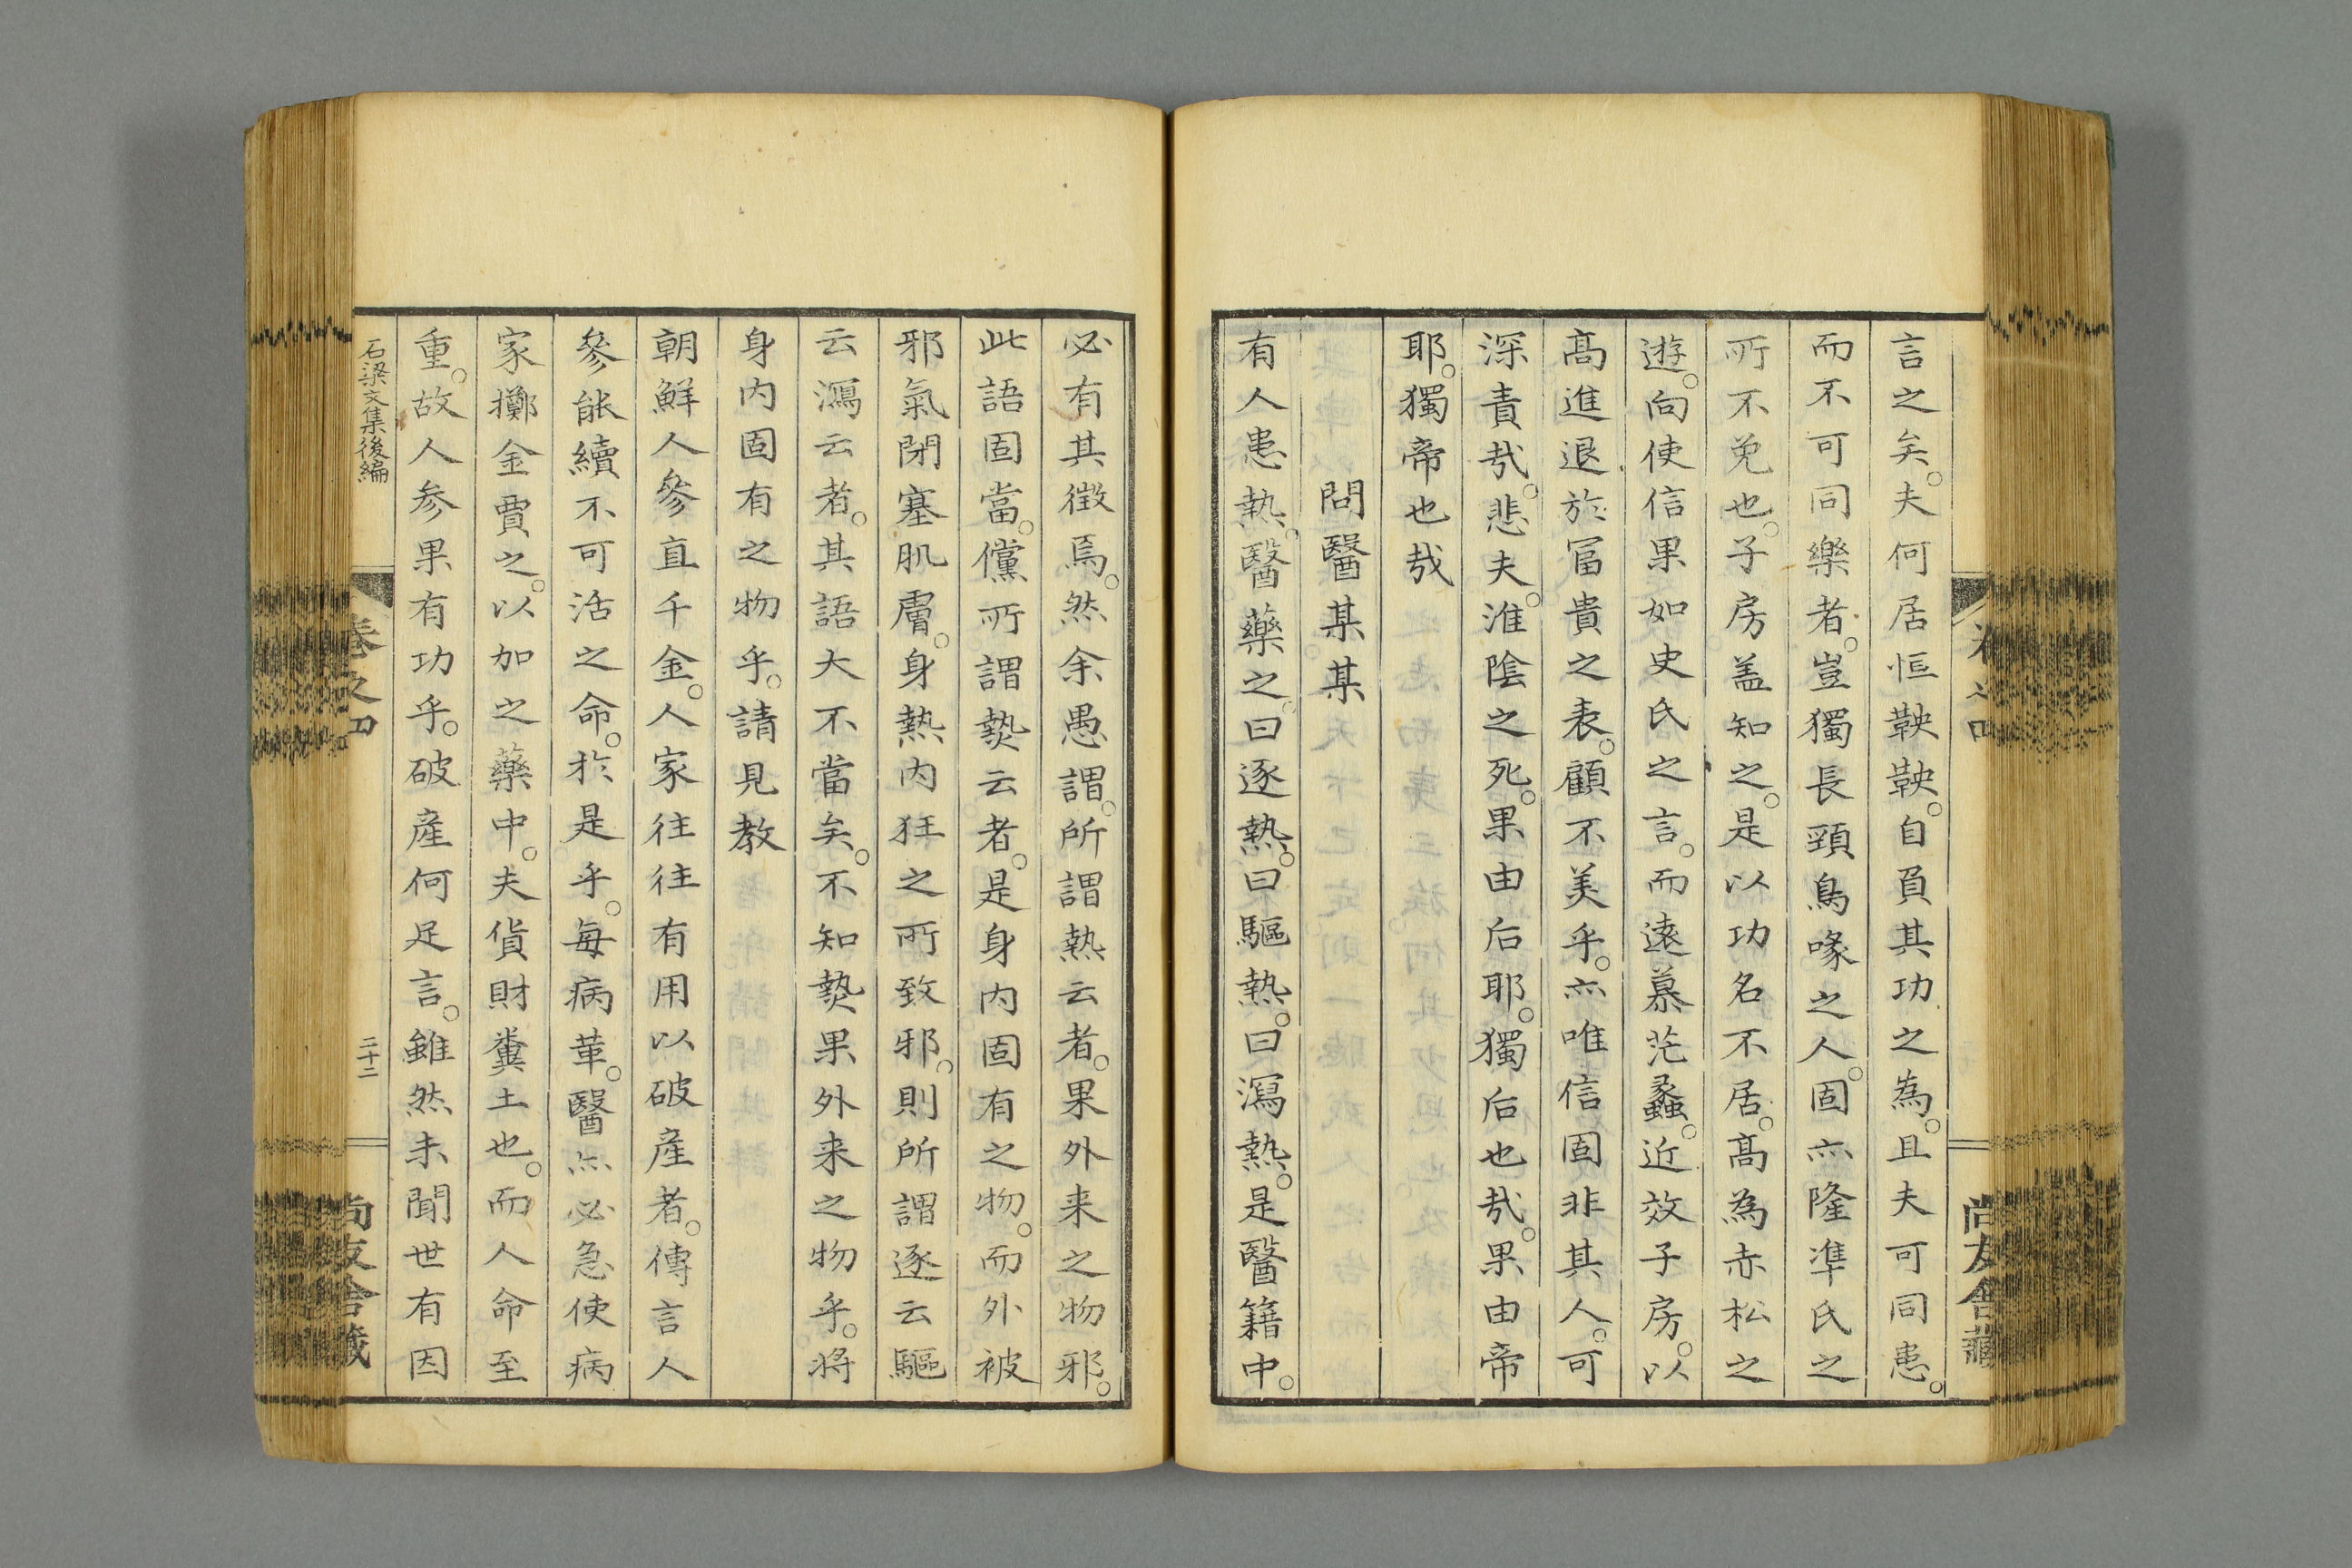 言之矣。夫何居恒鞅鞅。自負其功之為。且夫可同患。
而不可同樂者。豈獨長頸鳥喙之人。固亦隆凖氏之
所不免也。子房盖知之。是以功名不居。高為赤松之
遊。向使信果如史氏之言。而遠慕范蠡。近效子房。以
高進退於冨貴之表。顧不美乎。亦唯信固非其人。可
深責哉。悲夫。淮陰之死。果由后耶。獨后也哉。果由帝
耶。獨帝也哉
問醫某某
有人患熱。醫藥之。曰逐熱。曰驅熱。曰瀉熱。是醫籍中。
必有其徴焉。然余愚謂。所謂熱云者。果外来之物邪。
此語固當。儻所謂𤍠云者。是身内固有之物。而外被
邪氣閉塞肌膚。身熱内狂之所致邪。則所謂逐云驅
云瀉云者。其語大不當矣。不知𤍠果外来之物乎。将
身内固有之物乎。請見教
朝鮮人參直千金。人家往往有用以破産者。傳言人
參能續不可活之命。於是乎。每病革。醫亦必急使病
家擲金買之。以加之藥中。夫貨財糞土也。而人命至
重。故人参果有功乎。破産何足言。雖然未聞世有因
石梁文集後編
卷之四
二十二
尚友舍藏